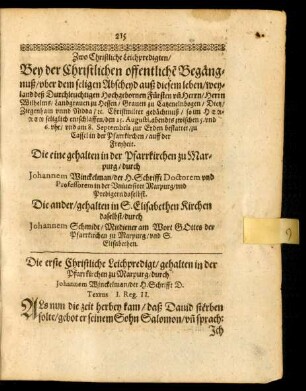 215
Zwo Christliche Leichpredigten/
Bey der Christlichen offentlichē Begäng-
nuß/vber dem seligen Abscheyd auß diesem leben/wey-
land deß Durchleuchtigen Hochgebornen Fürsten vñ Herrn/Herrn
Wilhelms/ Landgrauen zu Hessen/ Grauen zu Catzenelnbogen/ Dietz/
Ziegenhain vnnd Nidda/ꝛc. Christmilter gedächtnuß/ so im HER-
REN seliglich entschlaffen/den 25. Augusti, abends zwischen 5. vnd
6. vhr/ vnd am 8. Septembris zur Erden bestattet/ zu
Cassel in der Pfarrkirchen/ auff der
Freyheit.
Die eine gehalten in der Pfarrkirchen zu Mar-
purg/durch
Johannem Winckelman/der H. Schrifft Doctorem vnd
Professorem in der Vniuersitet Marpurg/vnd
Predigern daselbst.
Die ander/gehalten in S. Elisabethen Kirchen
daselbst/durch
Johannem Schmidt/ Mitdiener am Wort GOttes der
Pfarrkirchen zu Marpurg/ vnd S.
Elisabethen.
Die erste Christliche Leichpredigt/ gehalten in der
Pfarrkirchen zu Marpurg/durch
Johannem Winckelman/der H. Schrifft D.
Textus I. Reg. II.
ALs nun die zeit herbey kam/ daß Dauid sterben
solte/gebot er seinem Sohn Salomon/ vñ sprach:
Jch